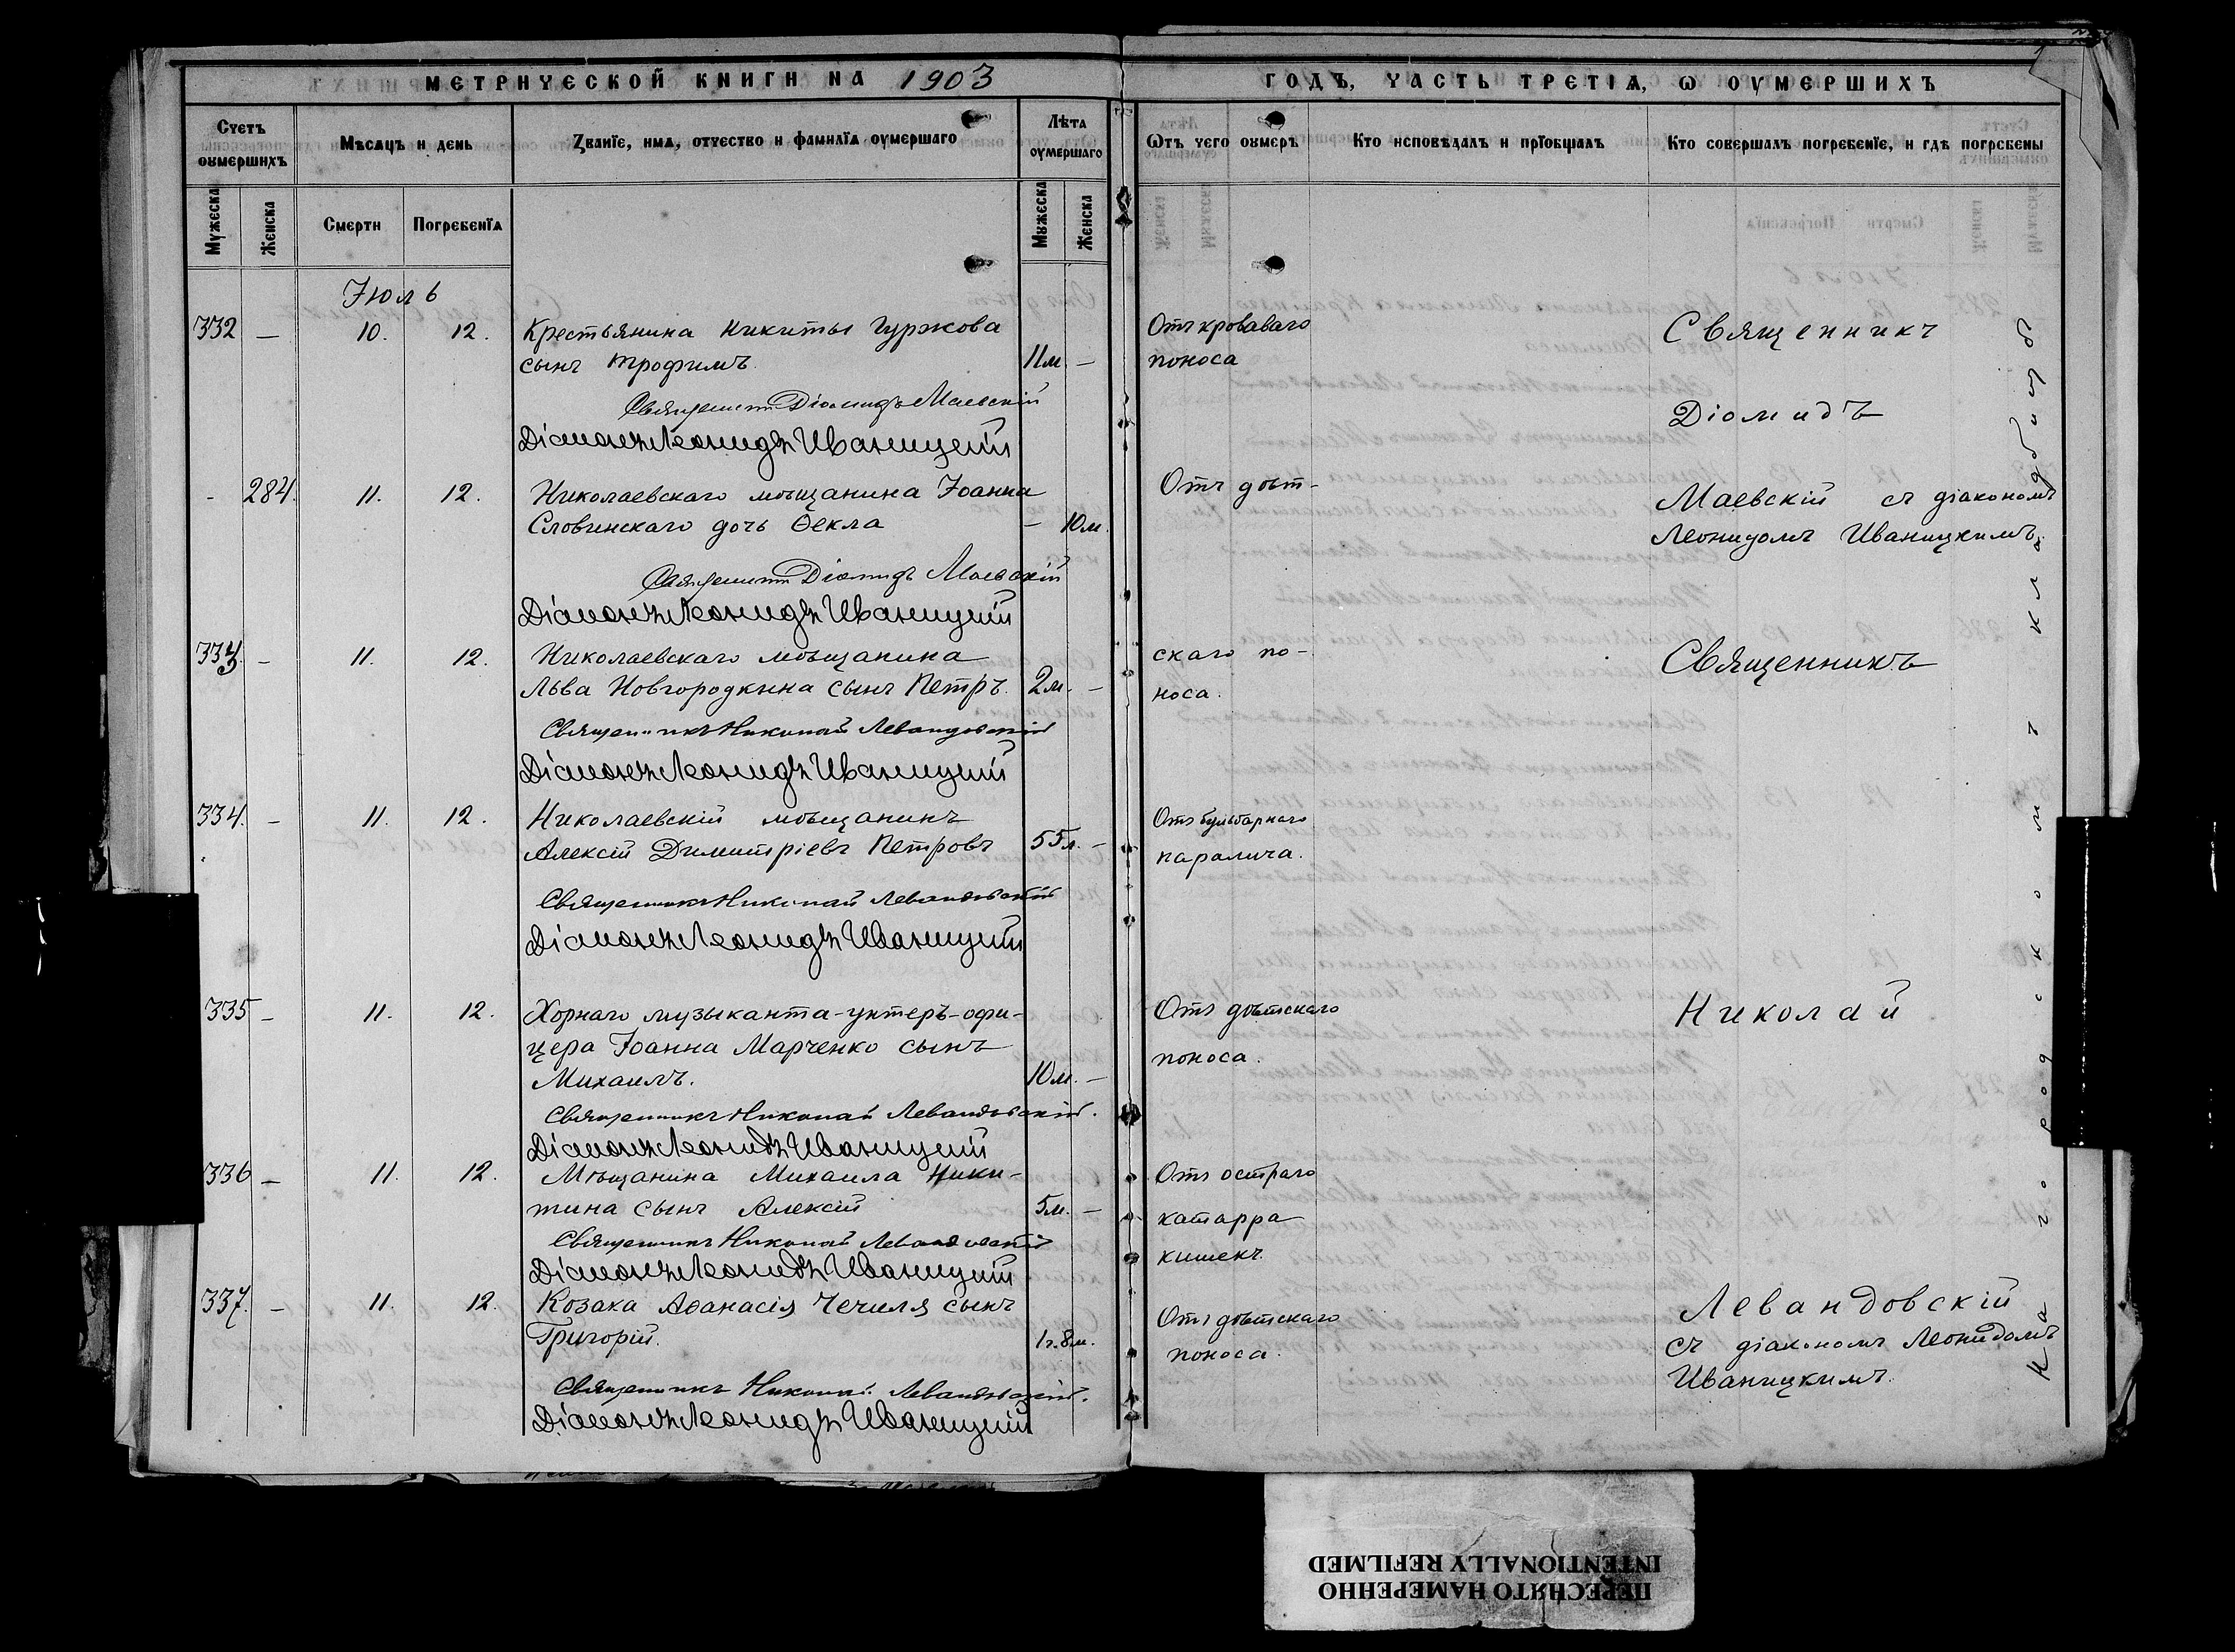 МЕТРИЧЕСКОЙ КНИГИ НА 1903
ГОДЪ, ЧАСТЬ ТРЕТІѦ, Ѡ ОУМЕРШИХЪ
Счетъ оумершихъ
Мѣсяцъ и день
Званіе, имѧ, отчество и фамиліѧ оумершаго
Лѣта оумершаго
Ѿтъ чего оумеръ
Кто исповѣдалъ и пріобщалъ
Кто совершалъ погребеніе, и гдѣ погребены
Мужеска
Женска
Смерти
Погребеніѧ
Мужеска
Женска
Іюль
332 — 10. 12. Крестьянина Никиты Гуржова
сынъ Трофимъ. 11м. —
Отъ кроваваго
поноса
Священникъ Діомидъ Маевскій
Діаконъ Леонидъ Иваницкій
- 284. 11. 12. Николаевскаго мѣщанина Іоанна
Словинскаго дочь Ѳекла — 10м.
Отъ дѣт-
Священникъ Діомидъ Маевскій
Діаконъ Леонидъ Иваницкій
333. — 11. 12. Николаевскаго мѣщанина
Льва Новгородкина сынъ Петръ. 2м. —
скаго по-
носа.
Священникъ Николай Левандовскій
Діаконъ Леонидъ Иваницкій
334. — 11. 12. Николаевскій мѣщанинъ
Алексій Димитріевъ Петровъ 55л. —
Отъ бульбарнаго
паралича.
Священникъ Николай Левандовскій
Діаконъ Леонидъ Иваницкій
335 — 11. 12. Хорнаго музыканта-унтеръ-офи-
цера Іоанна Марченко сынъ
Михаилъ. 10м. —
Отъ дѣтскаго
поноса.
Священникъ Николай Левандовскій.
Діаконъ Леонидъ Иваницкій
336 — 11. 12. Мѣщанина Михаила Ники-
тина сынъ Алексій 5м. —
Отъ остраго
катарра
кишекъ.
Священникъ Николай Левандовскій
Діаконъ Леонидъ Иваницкій
337. — 11. 12. Козака Аѳанасія Чечиля сынъ
Григорій. 1г. 8м.
Отъ дѣтскаго
поноса.
Священникъ Николай Левандовскій.
Діаконъ Леонидъ Иваницкій
Священникъ
Діомидъ
Маевскій съ діакономъ
Леонидомъ Иваницкимъ.
Священникъ
Николай
Левандовскій
съ діакономъ Леонидомъ
Иваницкимъ.
На городскомъ кладбищѣ
ПЕРЕСНЯТО НАМЕРЕННО
INTENTIONALLY REFILMED